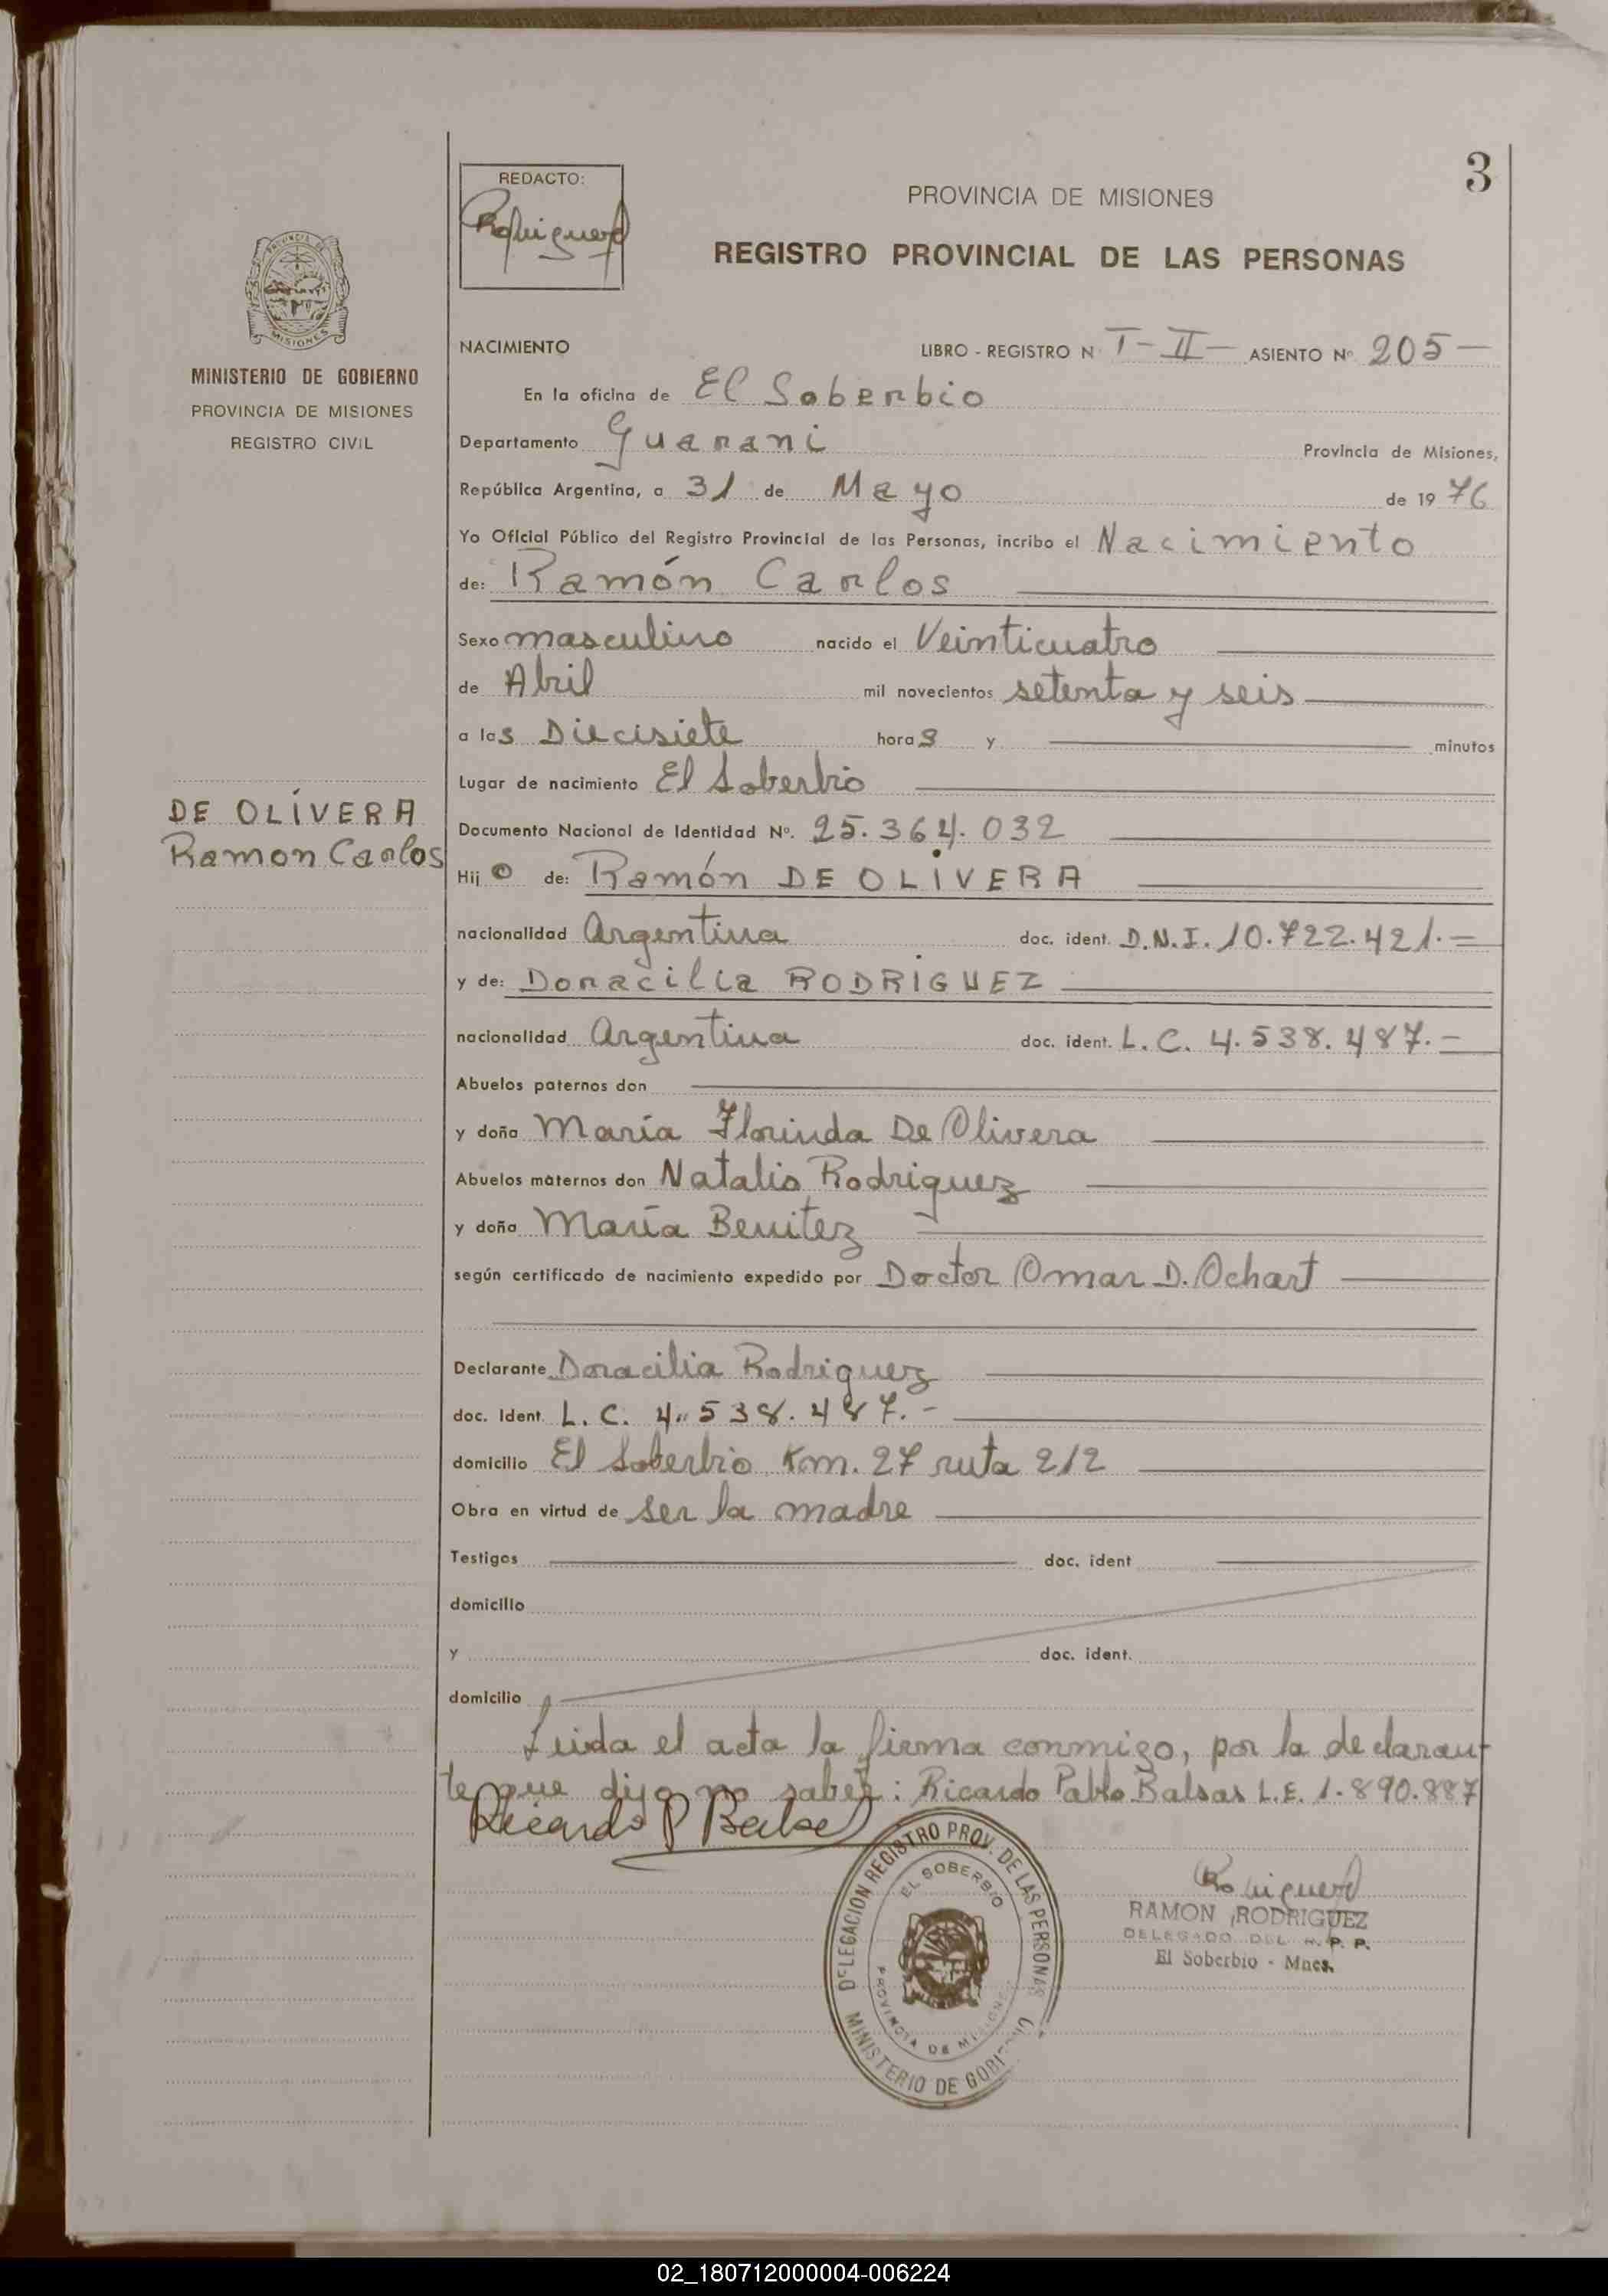 3
REDACTO:
PROVINCIA DE MISIONES
REGISTRO PROVINCIAL DE LAS PERSONAS
MINISTERIO DE GOBIERNO
PROVINCIA DE MISIONES
REGISTRO CIVIL
NACIMIENTO LIBRO - REGISTRO N T - II - ASIENTO Nº 205 -
En la oficina de El Soberbio
Departamento Guarani Provincia de Misiones,
República Argentina, a 31 de Mayo de 1976
Yo Oficial Público del Registro Provincial de las Personas, incribo el Nacimiento
de: Ramón Carlos
Sexo masculino nacido el Veinticuatro
de Abril mil novecientos setenta y seis
a las Diecisiete horas y minutos
Lugar de nacimiento El Soberbio
DE OLÍVERA
Ramon Carlos
Documento Nacional de Identidad Nº. 25.364.032
Hijo de: Ramón DE OLIVERA
nacionalidad Argentina doc. ident. D.N.I. 10.722.421.-
y de: Doracilia RODRIGUEZ
nacionalidad Argentina doc. ident. L.C. 4.538.487.-
Abuelos paternos don
y doña María Florinda De Olivera
Abuelos maternos don Natalio Rodriguez
y doña María Benitez
según certificado de nacimiento expedido por Doctor Omar D. Ochart
Declarante Doracilia Rodriguez
doc. Ident. L.C. 4.538.487.-
domicilio El Soberbio Km. 27 ruta 212
Obra en virtud de ser la madre
Testigos doc. ident
domicilio
y doc. ident.
domicilio
Leida el acta la firma conmigo, por la declaran-
te que dijo no saber: Ricardo Pablo Balsas L.E. 1.890.887
DELEGACION REGISTRO PROV. DE LAS PERSONAS
EL SOBERBIO
PROVINCIA DE MISIONES
MINISTERIO DE GOBIERNO
RAMON RODRIGUEZ
DELEGADO DEL R. P. P.
El Soberbio - Mnes.
02_180712000004-006224